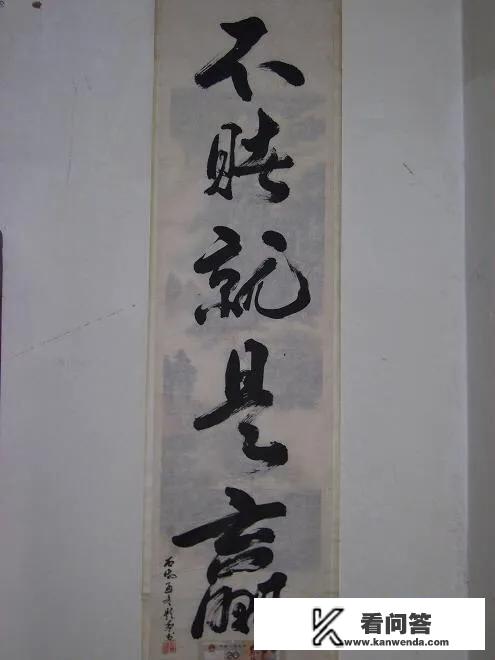 不赌就是赢
看问答
www.kanwenda.com
20